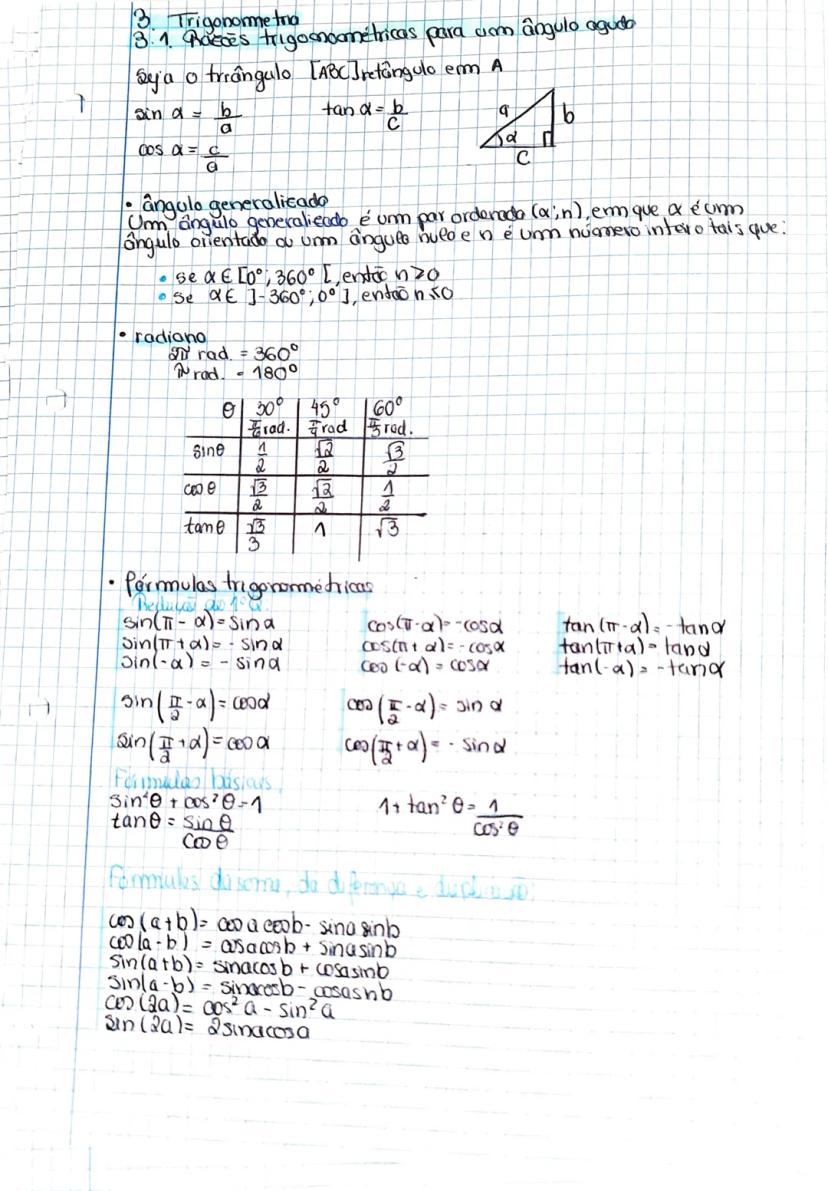 3. Trigonometria
3.1. Razões trigonométricas para um ângulo agudo
Seja o triângulo [ABC] retângulo em A
sin α = b/a tan α = b/c
cos α = c/a
a b α c
• ângulo generalizado
Um ângulo generalizado é um par ordenado (α; n), em que α é um
ângulo orientado ou um ângulo nulo e n é um número inteiro tais que:
• se α ∈ [0°; 360°[, então n ≥ 0
• se α ∈ ]-360°; 0°], então n ≤ 0
• radiano
2π rad. = 360°
π rad. = 180°
θ 30° 45° 60°
π/6 rad. π/4 rad π/3 rad.
sin θ 1/2 √2/2 √3/2
cos θ √3/2 √2/2 1/2
tan θ √3/3 1 √3
• Fórmulas trigonométricas
Redução ao 1º Q.
sin(π - α) = sin α cos(π - α) = -cos α tan(π - α) = -tan α
sin(π + α) = - sin α cos(π + α) = - cos α tan(π + α) = tan α
sin(-α) = - sin α cos(-α) = cos α tan(-α) = -tan α
sin(π/2 - α) = cos α cos(π/2 - α) = sin α
sin(π/2 + α) = cos α cos(π/2 + α) = - sin α
Fórmulas básicas
sin²θ + cos²θ = 1 1 + tan²θ = 1/cos²θ
tan θ = sin θ/cos θ
Fórmulas da soma, da diferença e duplicação:
cos(a+b) = cos a cos b - sin a sin b
cos(a-b) = cos a cos b + sin a sin b
sin(a+b) = sin a cos b + cos a sin b
sin(a-b) = sin a cos b - cos a sn b
cos(2a) = cos² a - sin² a
sin(2a) = 2 sin a cos a